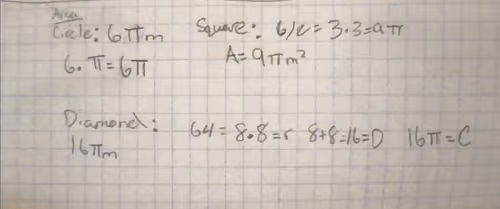 Area
Circle: 6πm
6·π=6π
Square: 6/2=3·3=9π
A=9πm²
Diamond:
16πm
64=8·8=r 8+8=16=D 16π=C